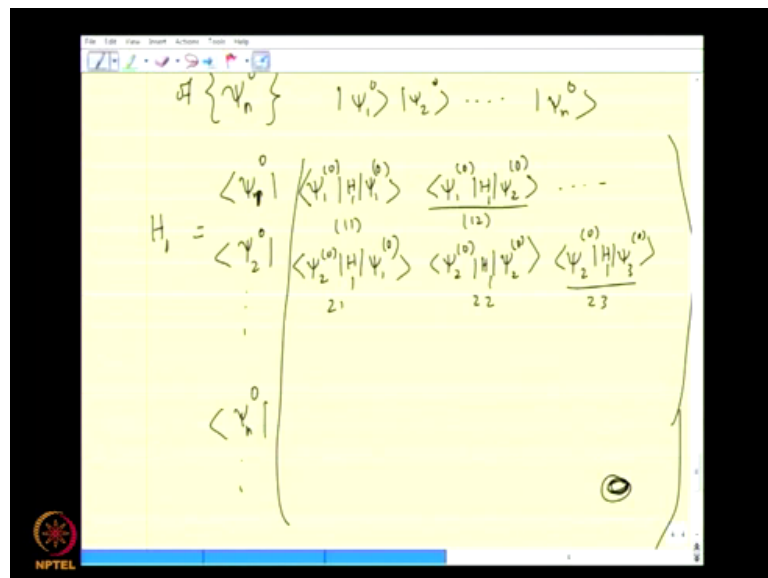 File Edit View Insert Actions Tools Help
{ψₙ⁰} |ψ₁⁰⟩ |ψ₂⁰⟩ .... |ψₙ⁰⟩
⟨ψ₁⁰| ⟨ψ₁⁽⁰⁾|H₁|ψ₁⁽⁰⁾⟩ ⟨ψ₁⁽⁰⁾|H₁|ψ₂⁽⁰⁾⟩ ....
(11) (12)
H₁ = ⟨ψ₂⁰| ⟨ψ₂⁽⁰⁾|H₁|ψ₁⁽⁰⁾⟩ ⟨ψ₂⁽⁰⁾|H₁|ψ₂⁽⁰⁾⟩ ⟨ψ₂⁽⁰⁾|H₁|ψ₃⁽⁰⁾⟩
21 22 23
⟨ψₙ⁰|
NPTEL